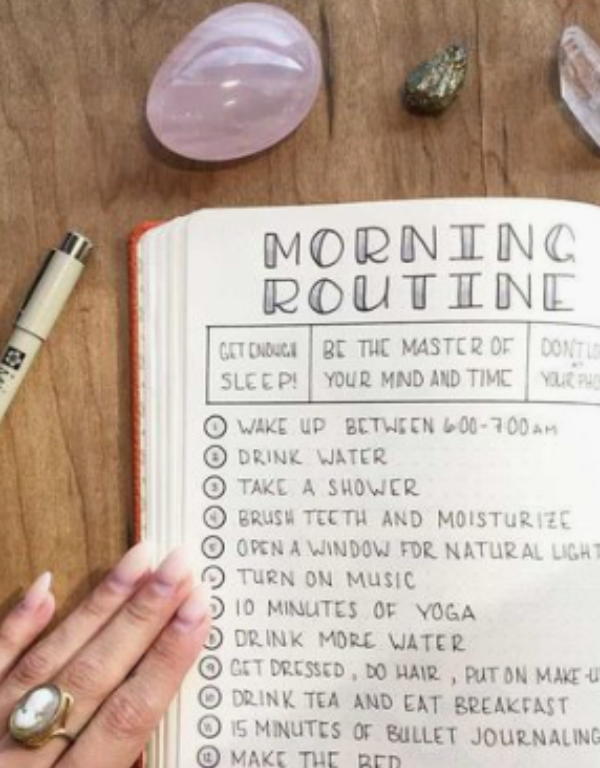 MORNING
ROUTINE
GET ENOUGH
SLEEP!
BE THE MASTER OF
YOUR MIND AND TIME
DON'T
YOUR
1 WAKE UP BETWEEN 6:00-7:00 AM
2 DRINK WATER
3 TAKE A SHOWER
4 BRUSH TEETH AND MOISTURIZE
5 OPEN A WINDOW FOR NATURAL LIGHT
6 TURN ON MUSIC
7 10 MINUTES OF YOGA
8 DRINK MORE WATER
9 GET DRESSED, DO HAIR, PUT ON MAKE-U
10 DRINK TEA AND EAT BREAKFAST
11 15 MINUTES OF BULLET JOURNALING
12 MAKE THE BED